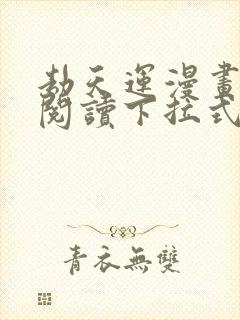 劫天運漫畫
閱讀下拉式
青衣無雙